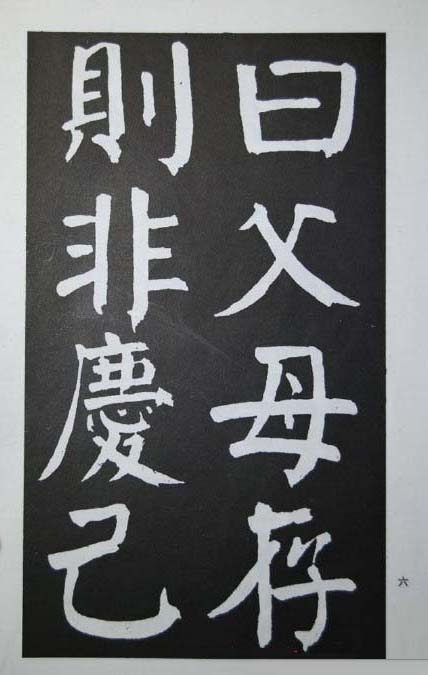 曰父母存
則非慶己
六